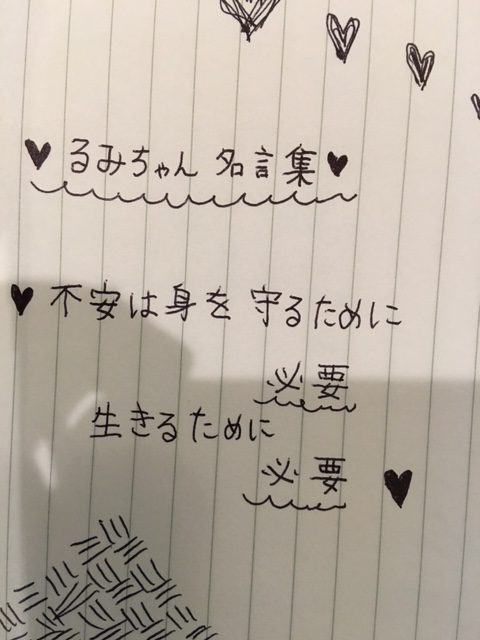 ♥るみちゃん 名言集♥
♥不安は身を守るために
必要
生きるために
必要♥